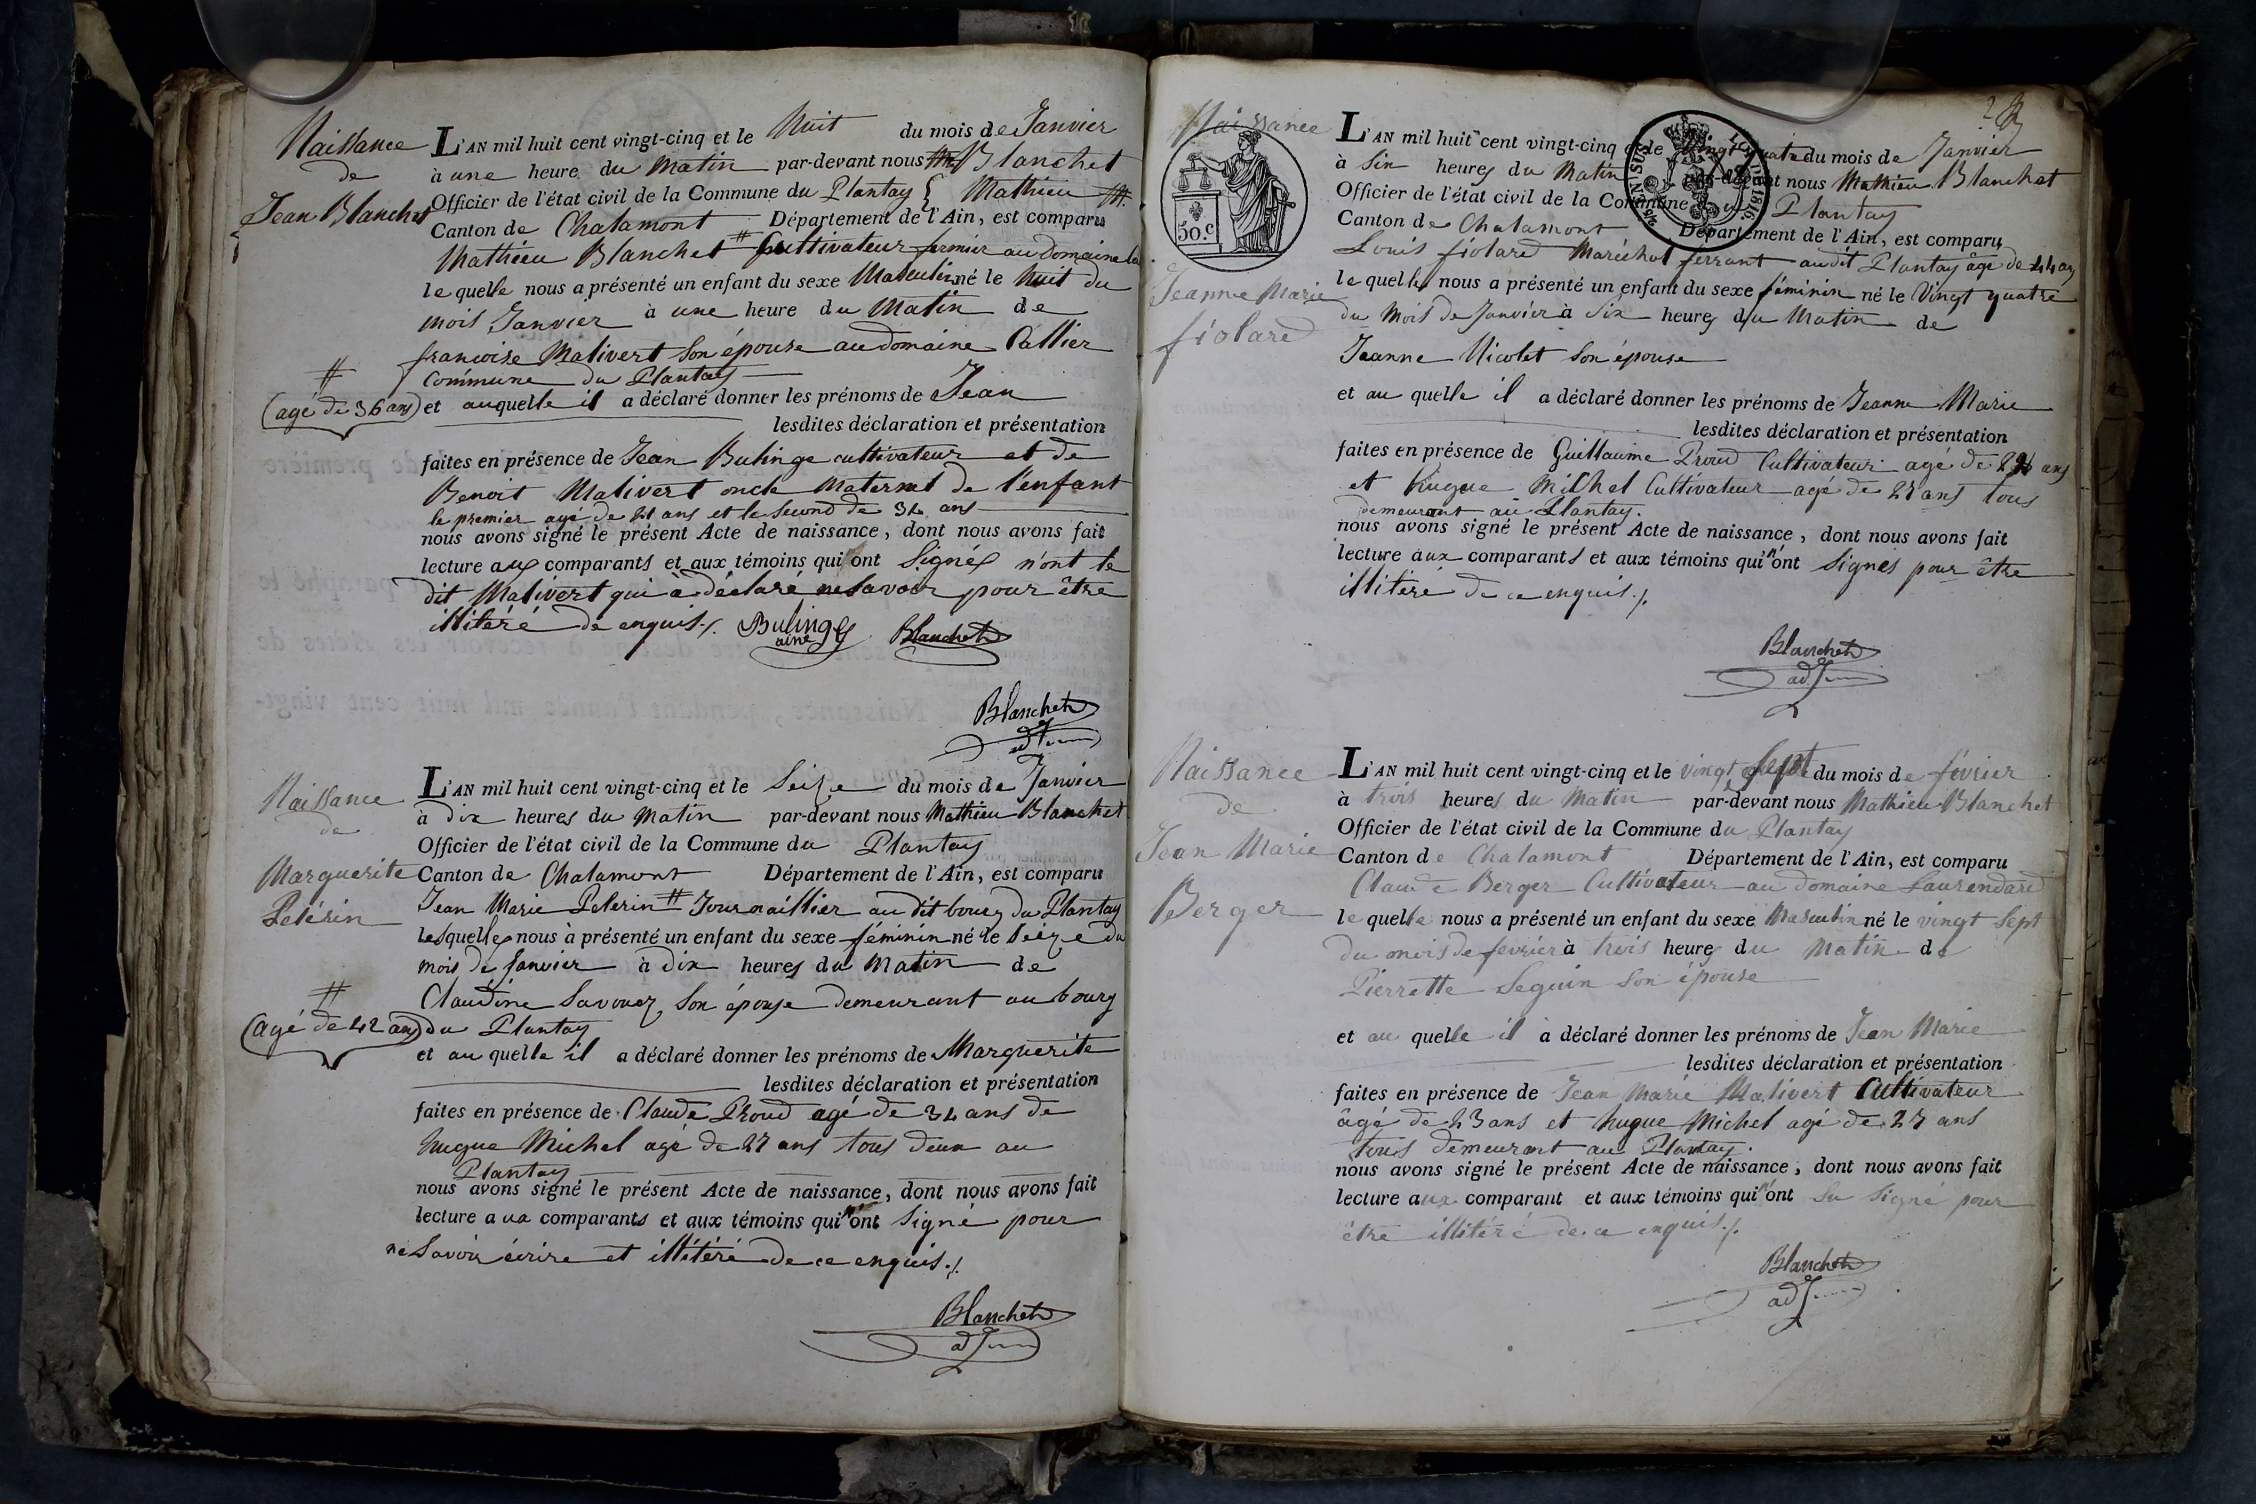 Naissance
de
Jean Blanchet
L'AN mil huit cent vingt-cinq et le huit du mois de Janvier
à une heure du Matin par-devant nous Blanchet
Officier de l'état civil de la Commune du Plantay Mathieu
Canton de Chalamont Département de l'Ain, est comparu
Mathieu Blanchet # Cultivateur fermier au domaine
le quelle nous a présenté un enfant du sexe Masculin né le huit du
mois Janvier à une heure du Matin de
francoise Malivert son épouse au domaine Callier
Commune du Plantay
#
(agé de 36 ans)
et auquelle il a déclaré donner les prénoms de Jean
lesdites déclaration et présentation
faites en présence de Jean Bulinge cultivateur et de
Benoit Malivert oncle Maternel de l'enfant
le premier agé de 21 ans et le second de 34 ans
nous avons signé le présent Acte de naissance, dont nous avons fait
lecture aux comparants et aux témoins qui ont Signés n'ont le
dit Malivert qui à déclaré ne Savoir pour être
illitéré de enquis ./.
Bulinge Blanchet
ainé
Blanchet
adj
Naissance
de
Marguerite
Pelérin
L'AN mil huit cent vingt-cinq et le Seize du mois de Janvier
à dix heures du Matin par-devant nous Mathieu Blanchet
Officier de l'état civil de la Commune du Plantay
Canton de Chalamont Département de l'Ain, est comparu
Jean Marie Pelerin # Journaillier au dit bourg du Plantay
lesquelle nous à présenté un enfant du sexe féminin né le Seize du
mois de Janvier à dix heures du Matin de
Claudine Savouez Son épouse demeurant au bourg
#
(agé de 42 ans)
du Plantay
et au quelle il a déclaré donner les prénoms de Marguerite
lesdites déclaration et présentation
faites en présence de Claude Proud agé de 34 ans de
hugue Michel agé de 27 ans tous deux au
Plantay
nous avons signé le présent Acte de naissance, dont nous avons fait
lecture a ux comparants et aux témoins qui n'ont Signé pour
ne Savoir écrire et illitéré de ce enquis ./.
Blanchet
adj
2
Naissance
50.c
Jeanne Marie
fiolard
L'AN mil huit cent vingt-cinq et le Vingt quatre du mois de Janvier
à Six heures du Matin par-devant nous Mathieu Blanchet
Officier de l'état civil de la Commune du Plantay
Canton de Chalamont Département de l'Ain, est comparu
Louis fiolard Maréchal ferrant audit Plantay âgé de 44 ans
le quelle nous a présenté un enfant du sexe féminin né le Vingt quatre
du Mois de Janvier à Six heures du Matin de
Jeanne Nicolet Son épouse
et au quelle il a déclaré donner les prénoms de Jeanne Marie
lesdites déclaration et présentation
faites en présence de Guillaume Proud Cultivateur agé de ans
et hugue Michel Cultivateur agé de 27 ans tous
demeurant au Plantay.
nous avons signé le présent Acte de naissance, dont nous avons fait
lecture aux comparants et aux témoins qui n'ont Signés pour être
illitéré de ce enquis ./.
Blanchet
adj
Naissance
de
Jean Marie
Berger
L'AN mil huit cent vingt-cinq et le vingt Sept du mois de février
à trois heures du Matin par-devant nous Mathieu Blanchet
Officier de l'état civil de la Commune du Plantay
Canton de Chalamont Département de l'Ain, est comparu
Claude Berger Cultivateur au domaine Laurendard
le quelle nous a présenté un enfant du sexe Masculin né le vingt Sept
du mois de fevrier à trois heures du Matin de
Pierrette Seguin Son épouse
et au quelle il à déclaré donner les prénoms de Jean Marie
lesdites déclaration et présentation
faites en présence de Jean Marie Malivert Cultivateur
âgé de 23 ans et hugue Michel agé de 27 ans
tous demeurant au Plantay.
nous avons signé le présent Acte de naissance, dont nous avons fait
lecture aux comparant et aux témoins qui n'ont Su Signé pour
être illitéré de ce enquis ./.
Blanchet
adj